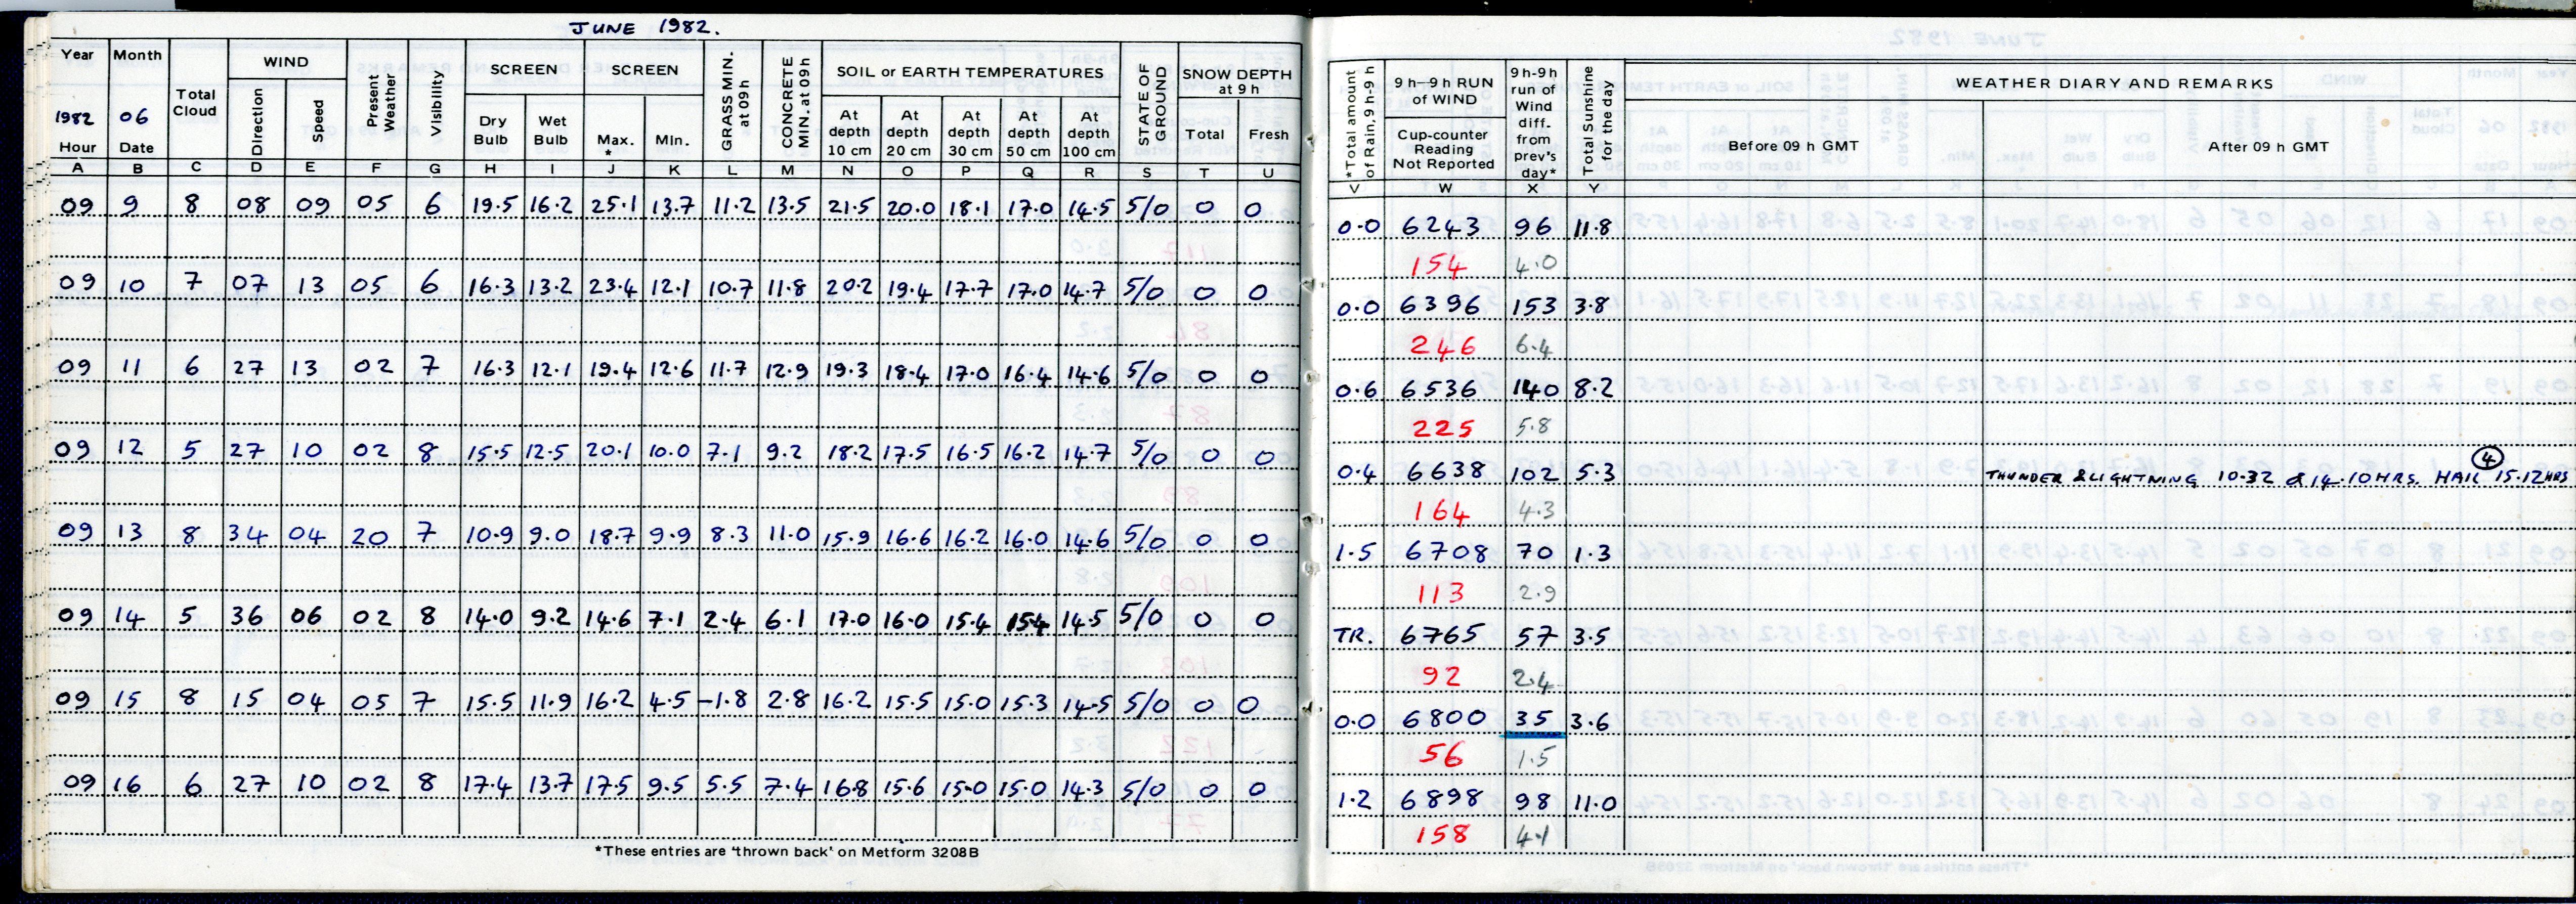 JUNE 1982.
Year Month Total Cloud WIND Present Weather Visibility SCREEN SCREEN GRASS MIN. at 09h CONCRETE MIN. at 09h SOIL or EARTH TEMPERATURES STATE OF GROUND SNOW DEPTH at 9 h
1982 06 Direction Speed Dry Bulb Wet Bulb Max. * Min. At depth 10 cm At depth 20 cm At depth 30 cm At depth 50 cm At depth 100 cm Total Fresh
Hour Date
A B C D E F G H I J K L M N O P Q R S T U
09 9 8 08 09 05 6 19.5 16.2 25.1 13.7 11.2 13.5 21.5 20.0 18.1 17.0 14.5 5/0 0 0
09 10 7 07 13 05 6 16.3 13.2 23.4 12.1 10.7 11.8 20.2 19.4 17.7 17.0 14.7 5/0 0 0
09 11 6 27 13 02 7 16.3 12.1 19.4 12.6 11.7 12.9 19.3 18.4 17.0 16.4 14.6 5/0 0 0
09 12 5 27 10 02 8 15.5 12.5 20.1 10.0 7.1 9.2 18.2 17.5 16.5 16.2 14.7 5/0 0 0
09 13 8 34 04 20 7 10.9 9.0 18.7 9.9 8.3 11.0 15.9 16.6 16.2 16.0 14.6 5/0 0 0
09 14 5 36 06 02 8 14.0 9.2 14.6 7.1 2.4 6.1 17.0 16.0 15.4 15.4 14.5 5/0 0 0
09 15 8 15 04 05 7 15.5 11.9 16.2 4.5 -1.8 2.8 16.2 15.5 15.0 15.3 14.5 5/0 0 0
09 16 6 27 10 02 8 17.4 13.7 17.5 9.5 5.5 7.4 16.8 15.6 15.0 15.0 14.3 5/0 0 0
*These entries are 'thrown back' on Metform 3208B
*Total amount of Rain, 9 h-9 h 9 h–9 h RUN of WIND 9 h-9 h run of Wind diff. from prev's day* Total Sunshine for the day WEATHER DIARY AND REMARKS
Cup-counter Reading Not Reported Before 09 h GMT After 09 h GMT
V W X Y
0.0 6243 96 11.8
154 4.0
0.0 6396 153 3.8
246 6.4
0.6 6536 140 8.2
225 5.8
4
0.4 6638 102 5.3 THUNDER & LIGHTNING 10.32 & 14.10HRS. HAIL 15.12HRS
164 4.3
1.5 6708 70 1.3
113 2.9
TR. 6765 57 3.5
92 2.4
0.0 6800 35 3.6
56 1.5
1.2 6898 98 11.0
158 4.1